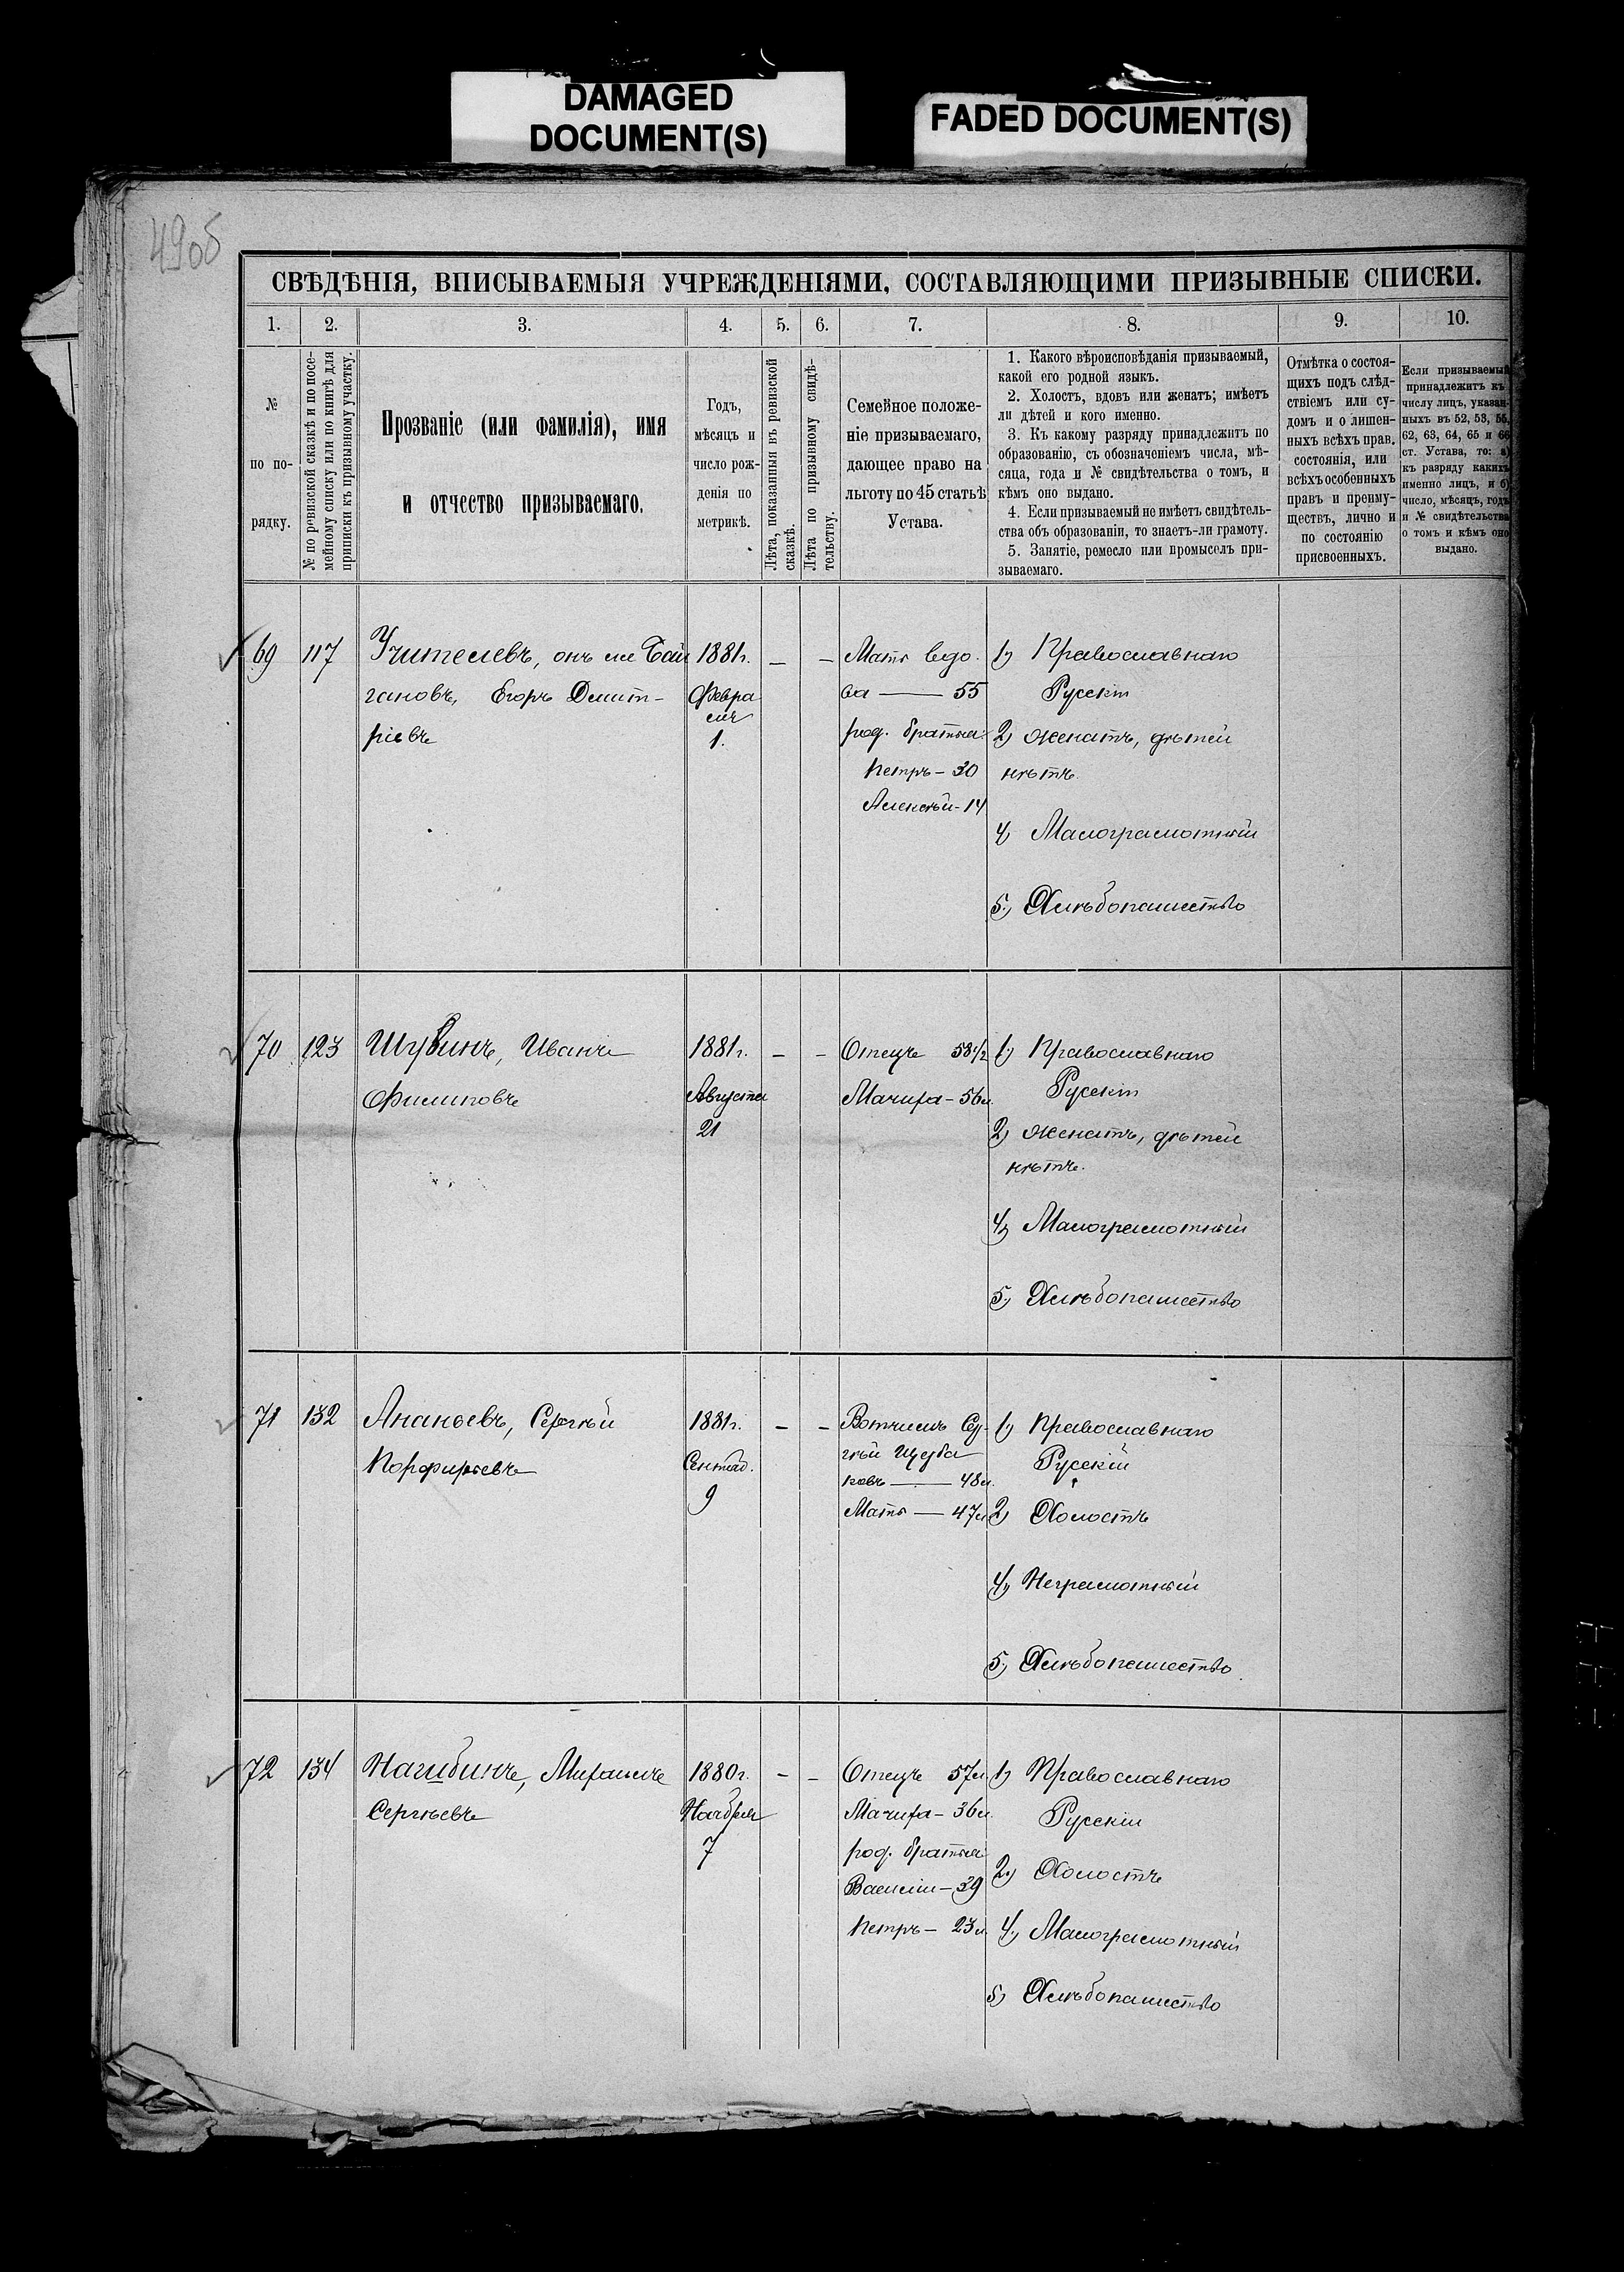 DAMAGED
DOCUMENT(S)
FADED DOCUMENT(S)
490б
СВѢДѢНІЯ, ВПИСЫВАЕМЫЯ УЧРЕЖДЕНІЯМИ, СОСТАВЛЯЮЩИМИ ПРИЗЫВНЫЕ СПИСКИ.
1. 2. 3. 4. 5. 6. 7. 8. 9. 10.
№
по по-
рядку.
№ по ревизской сказкѣ и по посе-
мейному списку или по книгѣ для
приписки къ призывному участку.
Прозваніе (или фамилія), имя
и отчество призываемаго.
Годъ,
мѣсяцъ и
число рож-
денія по
метрикѣ.
Лѣта, показанныя въ ревизской
сказкѣ.
Лѣта по призывному свидѣ-
тельству.
Семейное положе-
ніе призываемаго,
дающее право на
льготу по 45 статьѣ
Устава.
1. Какого вѣроисповѣданія призываемый,
какой его родной языкъ.
2. Холостъ, вдовъ или женатъ; имѣетъ
ли дѣтей и кого именно.
3. Къ какому разряду принадлежитъ по
образованію, съ обозначеніемъ числа, мѣ-
сяца, года и № свидѣтельства о томъ, и
кѣмъ оно выдано.
4. Если призываемый не имѣетъ свидѣтель-
ства объ образованіи, то знаетъ-ли грамоту.
5. Занятіе, ремесло или промыселъ при-
зываемаго.
Отмѣтка о состоя-
щихъ подъ слѣд-
ствіемъ или су-
домъ и о лишен-
ныхъ всѣхъ прав.
состоянія, или
всѣхъ особенныхъ
правъ и преиму-
ществъ, лично и
по состоянію
присвоенныхъ.
Если призываемый
принадлежитъ къ
числу лицъ, указан-
ныхъ въ 52, 53, 55,
62, 63, 64, 65 и 66
ст. Устава, то: а)
къ разряду какихъ
именно лицъ, и б)
число, мѣсяцъ, годъ
и № свидѣтельства
о томъ и кѣмъ оно
выдано.
69 117 Учителевъ, онъ же Бай
гановъ, Егоръ Дмит-
ріевъ
1881г.
Февра
ля
1.
— —
Мать вдо-
ва — 55
род. братья:
Петръ - 20
Алексѣй - 14
1) Православнаго
Русскій
2) Женатъ, дѣтей
нѣтъ.
4) Малограмотный
5) Хлѣбопашество
70 123 Шубинъ, Иванъ
Филиповъ
1881г.
Августа
21
— —
Отецъ 58 1/2
Мачиха - 56л.
1) Православнаго
Русскій
2) Женатъ, дѣтей
нѣтъ.
4) Малограмотный
5) Хлѣбопашество
71 132 Ананьевъ, Сергѣй
Порфирьевъ
1881г.
Сентяб.
9
— —
Вотчимъ Сер-
гѣй Щерба
ковъ — 48л.
Мать — 47л.
1) Православнаго
Русскій
2) Холостъ
4) Неграмотный
5) Хлѣбопашество
72 134 Нагибинъ, Михаилъ
Сергѣевъ
1880г.
Ноября
7
— —
Отецъ 57л.
Мачиха - 36л.
род. братья
Василій - 39
Петръ - 23л.
1) Православнаго
Русскій
2) Холостъ
4) Малограмотный
5) Хлѣбопашество